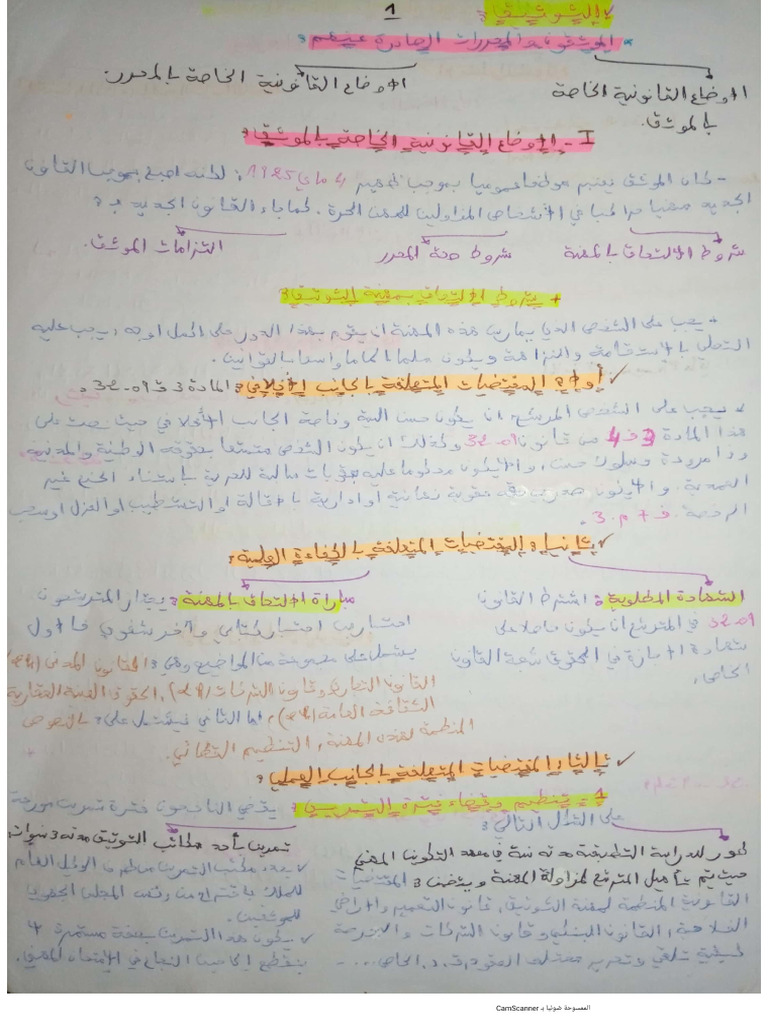 1
✓ التوثيق :
* الموثقون والمحررات الصادرة عنهم :
الأوضاع القانونية الخاصة بالموثق.
الأوضاع القانونية الخاصة بالمحرر.
I - الأوضاع القانونية الخاصة بالموثق :
- كان الموثق يعتبر موظفا عموميا بموجب ظهير 4 ماي 1925 ; لكنه أصبح بموجب القانون
الجديد مهنيا في الأشخاص المزاولين للمهن الحرة. كما جاء القانون الجديد ب :
شروط الالتحاق بالمهنة
شروط صحة المحرر
التزامات الموثق.
+ شروط الالتحاق بمهنة التوثيق :
- يجب على الشخص الذي يمارس هذه المهنة أن يقوم بهذا الدور على أكمل وجه ، يجب عليه
التحلي بالاستقامة والنزاهة ويكون ملما إلماما واسعا بالقوانين.
✓ أولا : المقتضيات المتعلقة بالجانب الأخلاقي : المادة 3 ق 32.09.
يجب على الشخص المترشح أن يكون حسن السيرة وخاصة الجانب الأخلاقي حيث نصت على
هذا المادة 3 و 4 من قانون 32.09 وكذلك أن يكون الشخص متمتعا بحقوقه الوطنية والمدنية
وذا مروءة وسلوك حسن ، وألا يكون محكوما عليه
وألا يكون صدرت في حقه عقوبة أو إدارية بالإقالة أو التشطيب أو العزل أو سحب
الرخصة. ف 7 م 3.
✓ ثانيا : المقتضيات المتعلقة بالكفاءة العلمية :
الشهادة المطلوبة : اشترط القانون
32.09 في المترشح أن يكون حاصلا على
شهادة الإجازة في الحقوق شعبة القانون
الخاص.
مباراة الالتحاق بالمهنة : يجتاز المترشحون
اختبارين اختبار كتابي وآخر شفوي فالأول
يشتمل على مجموعة من المواضيع وهي : القانون المدني
القانون التجاري وقانون الشركات ، الحقوق العينية العقارية
الثقافة العامة ، أما الثاني فيشتمل على : النصوص
المنظمة لهذه المهنة ، التنظيم القضائي.
✓ ثالثا : المقتضيات المتعلقة بالجانب العملي :
1 - تنظيم وقضاء فترة التدريب : يقضي الناجحون فترة تمرين موزعة
على الشكل التالي :
طور للدراسة التطبيقية مدته سنة في معهد التكوين المهني
حيث يتم تأهيل المترشح لمزاولة المهنة ويتضمن : المقتضيات
القانونية المنظمة لمهنة التوثيق ، قانون التعمير والأراضي
الفلاحية ، القانون البنكي وقانون الشركات والبورصة
كيفية تلقي وتحرير مختلف العقود ، ق. د. الخاص ...
تمرين بأحد مكاتب التوثيق مدته 3 سنوات :
✓ يحدد مكتب التمرين من طرف الوكيل العام
للملك باقتراح من رئيس المجلس الجهوي
للموثقين.
✓ يكون هذا التمرين بصفة مستمرة لا
ينقطع إلا حين النجاح في الامتحان المهني.
الممسوحة ضوئيا بـ CamScanner